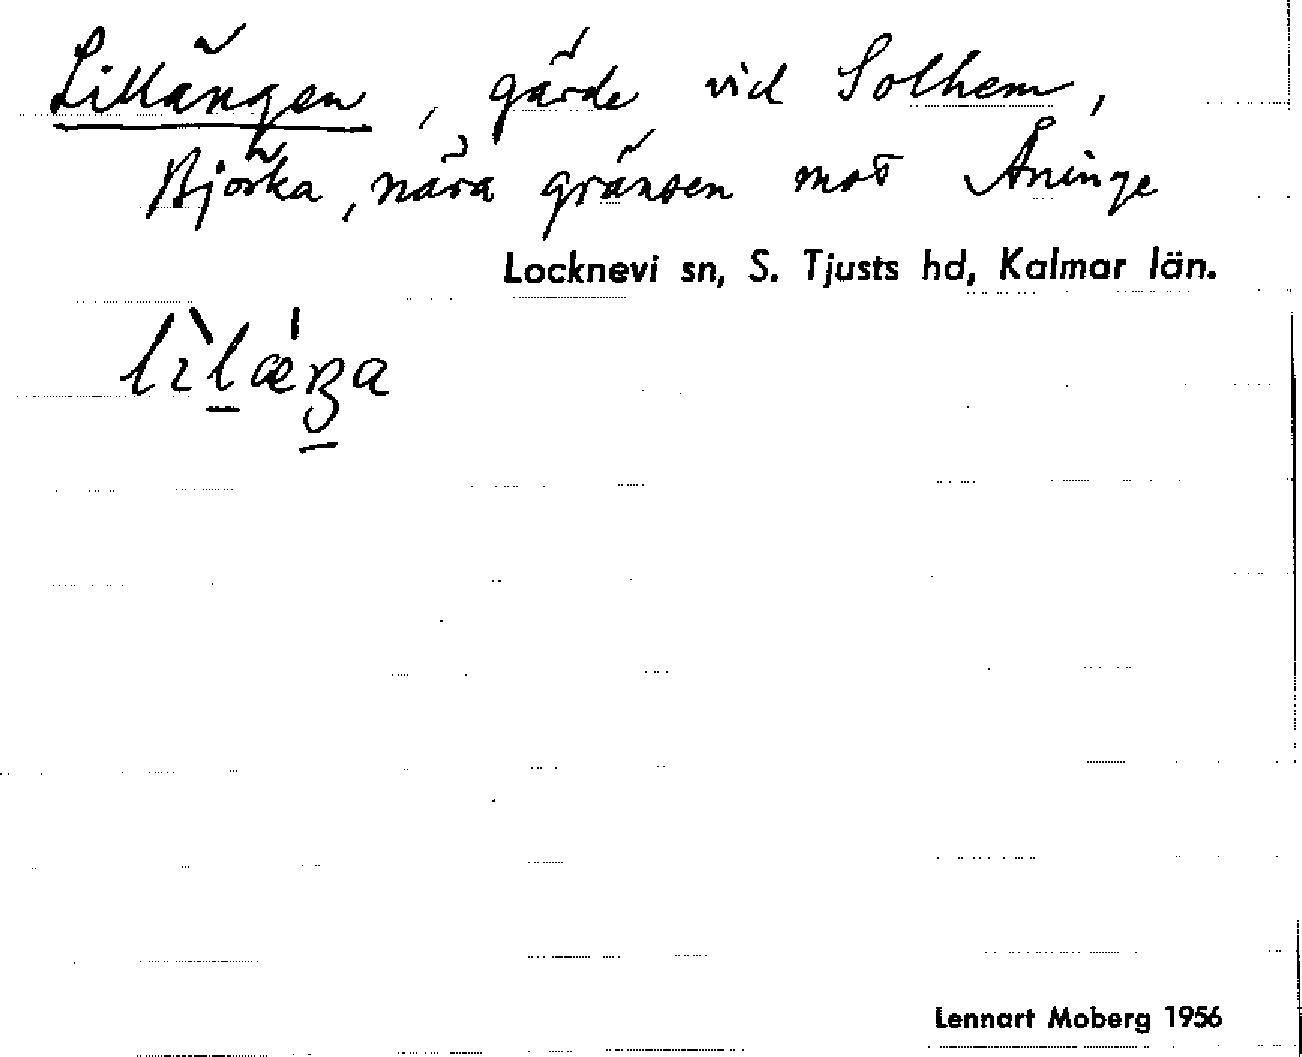 Lillängen, gärde vid Solhem,
Björka, nära gränsen mot Åninge
Locknevi sn, S. Tjusts hd, Kalmar län.
Lennart Moberg 1956